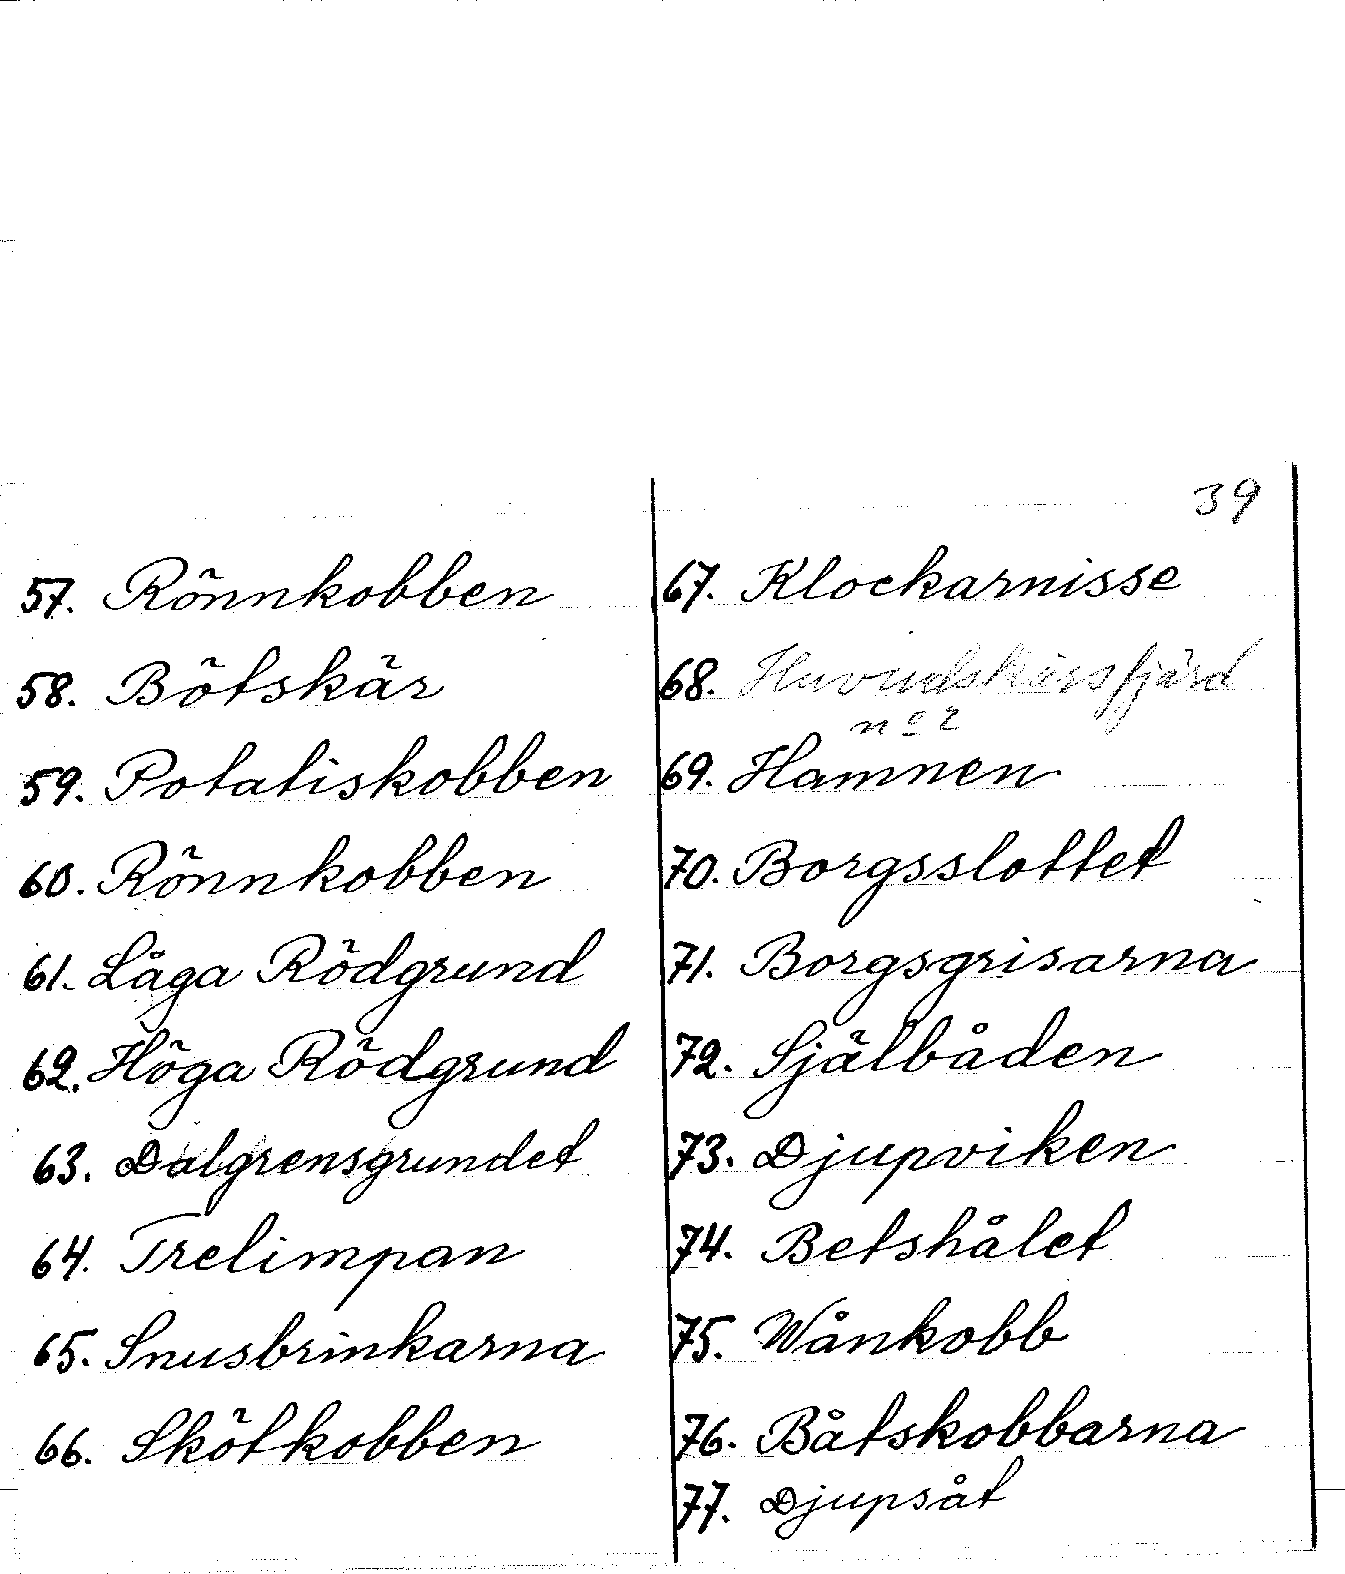 39
57. Rönnkobben
58. Bötskär
59. Potatiskobben
60. Rönnkobben
61. Låga Rödgrund
62. Höga Rödgrund
63. Dalgrensgrundet
64. Trelimpan
65. Snusbrinkarna
66. Skötkobben
67. Klockarnisse
68. Huvudskärsfjärd
nº 2
69. Hamnen
70. Borgsslottet
71. Borgsgrisarna
72. Själbåden
73. Djupviken
74. Betshålet
75. Wånkobb
76. Båtskobbarna
77. Djupsåt